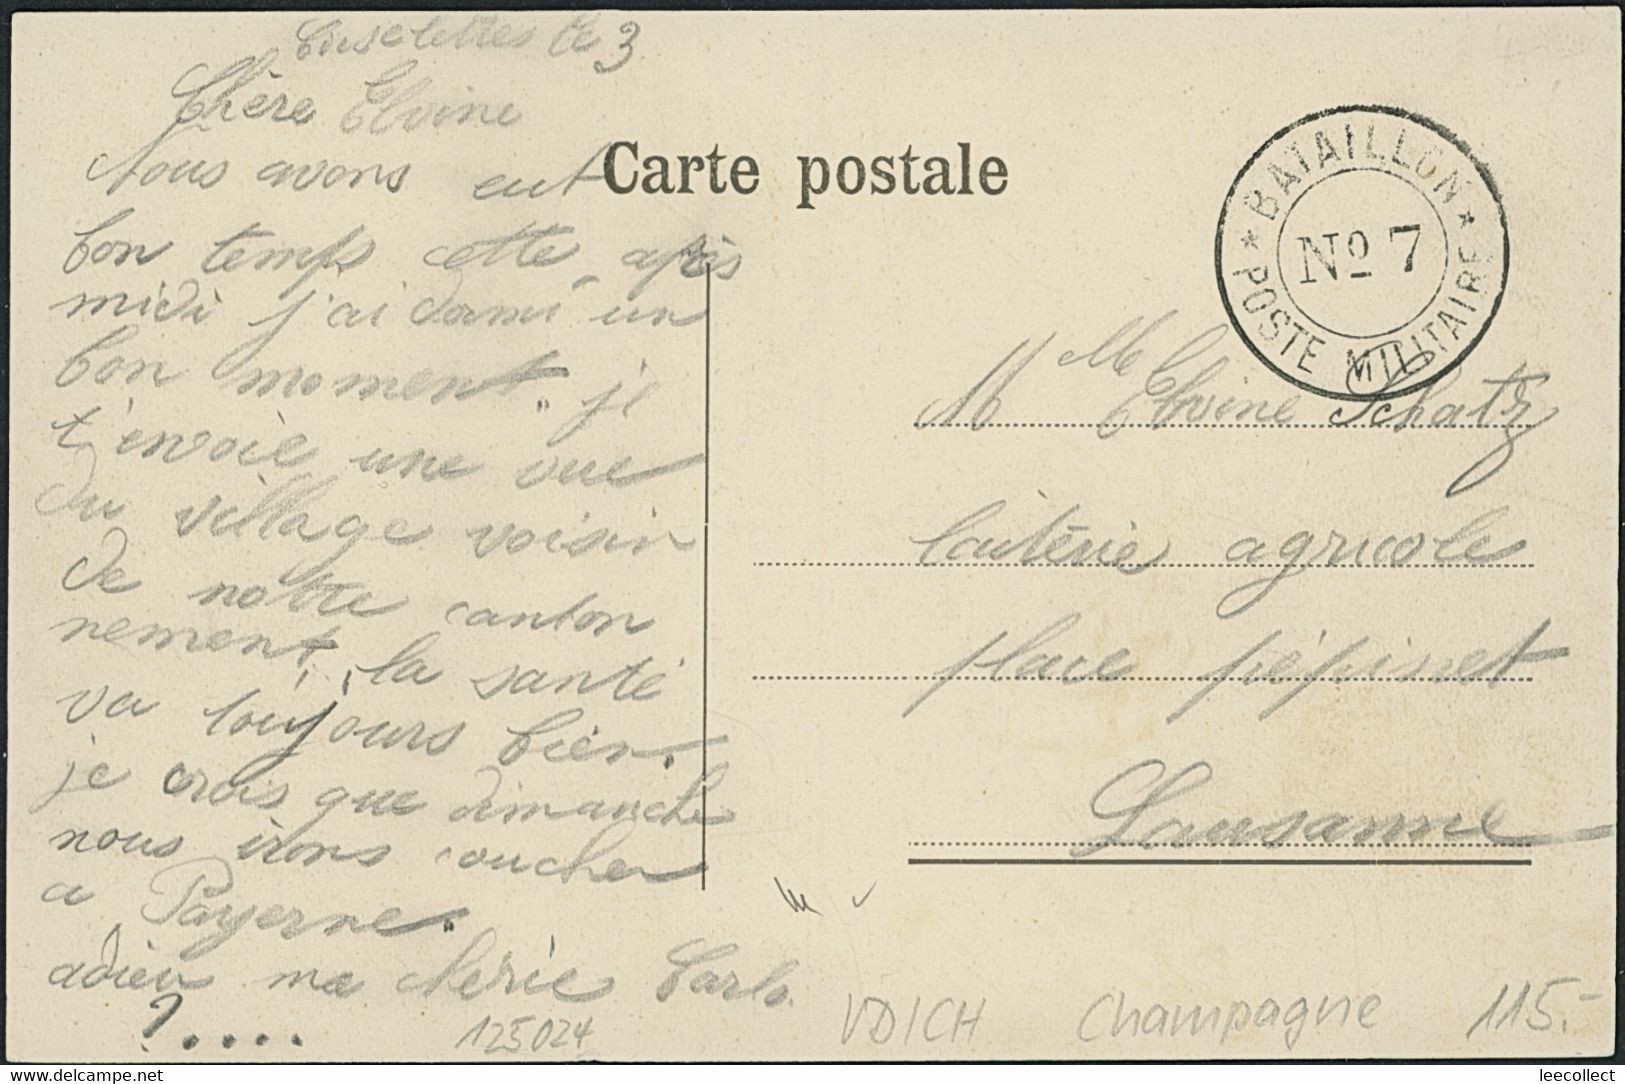 le 3
Chère Elvine
Nous avons eut
bon temps cette après
midi j'ai dormi un
bon moment, je
t'envoie une vue
du village voisin
de notre canton
nement, la santé
va toujours bien.
je crois que dimanche
nous irons coucher
a Payerne.
adieu ma cherie Carlo.
?....
125024
Carte postale
★ BATAILLON ★
No 7
POSTE MILITAIRE
Mlle Elvine Schatz
laitérie agricole
place pépinet
Lausanne
VD/CH Champagne 115.-
www.delcampe.net
leecollect